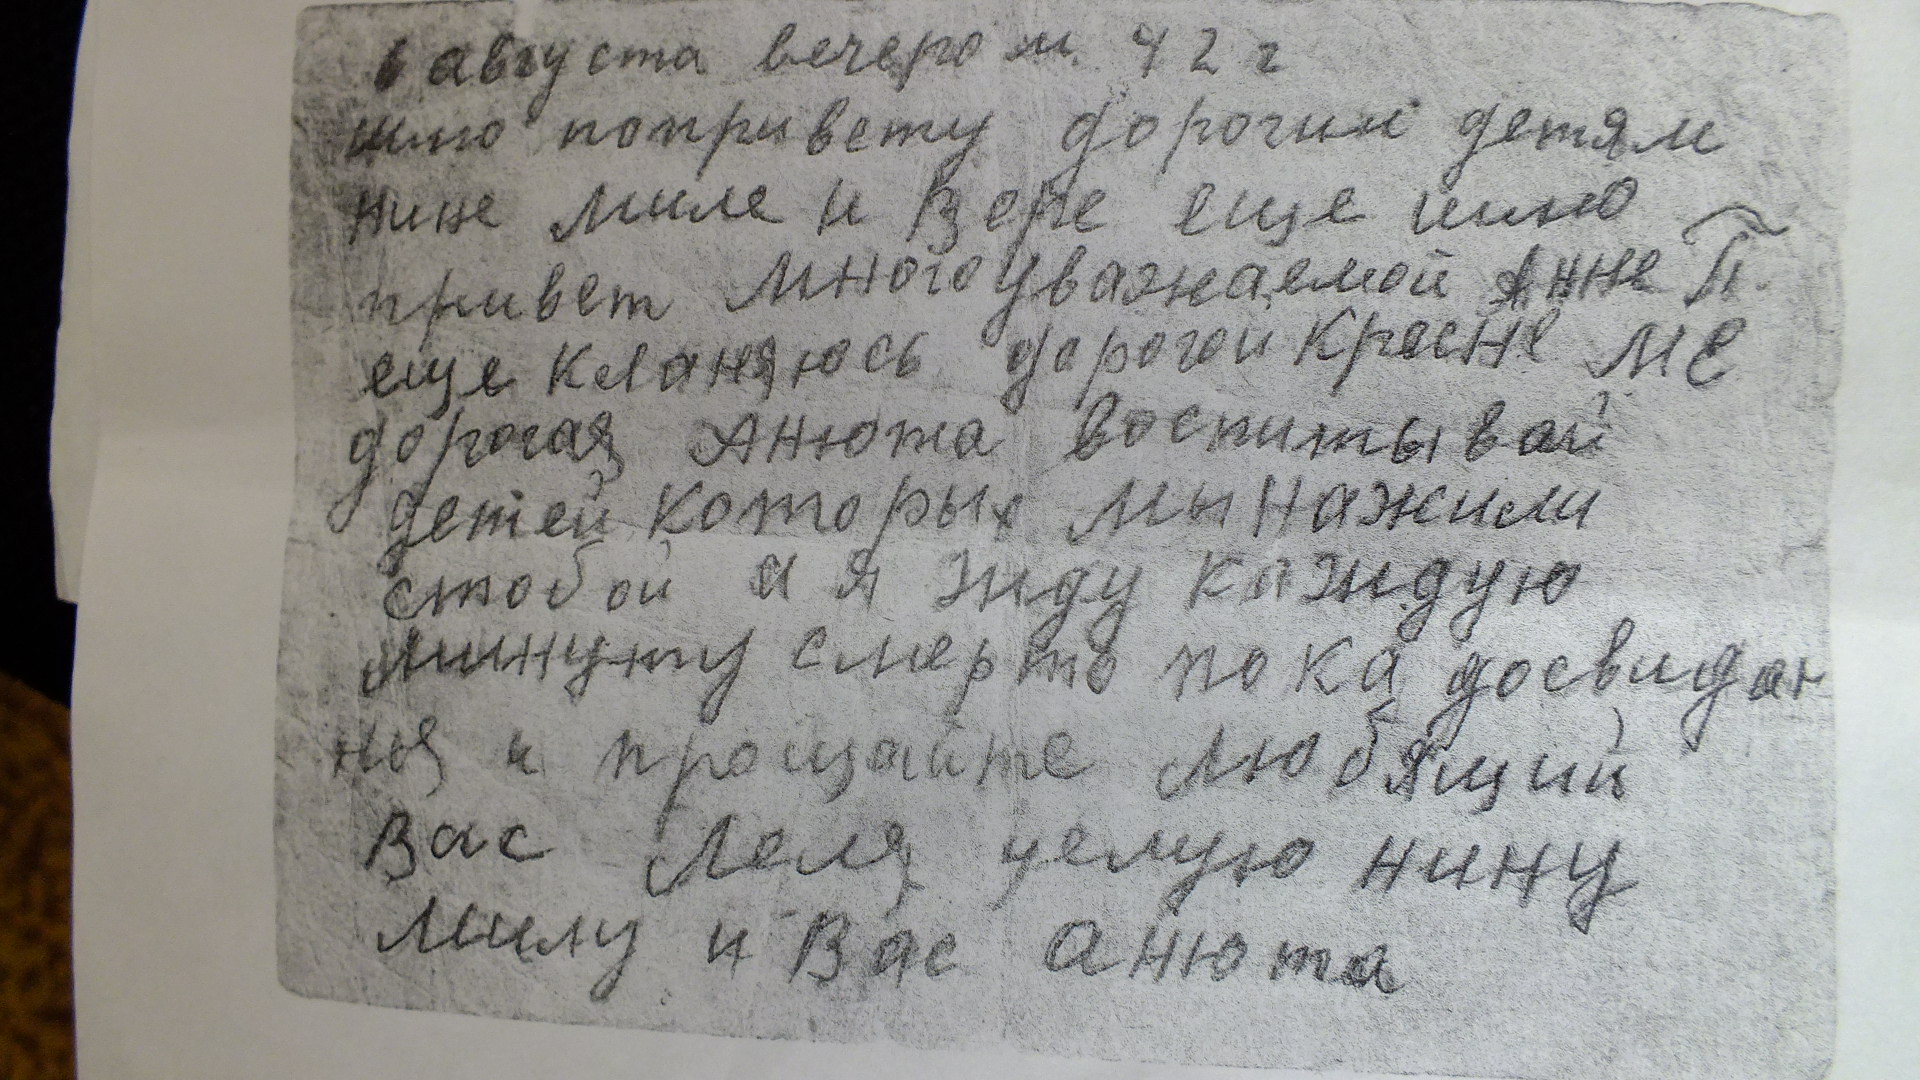 6 августа вечером 42 г
шлю попривету дорогим детям
нине миле и Вере еще шлю
привет многоуважаемой Анне П.
еще Кланяюсь дорогой Кресне МЕ
дорогая Анюта воспитывай
детей которых мы нажили
стобой а я жду каждую
минуту смерть пока досвидан
ня и прощайте любящий
Вас Леля целую нину
милу и Вас Анюта